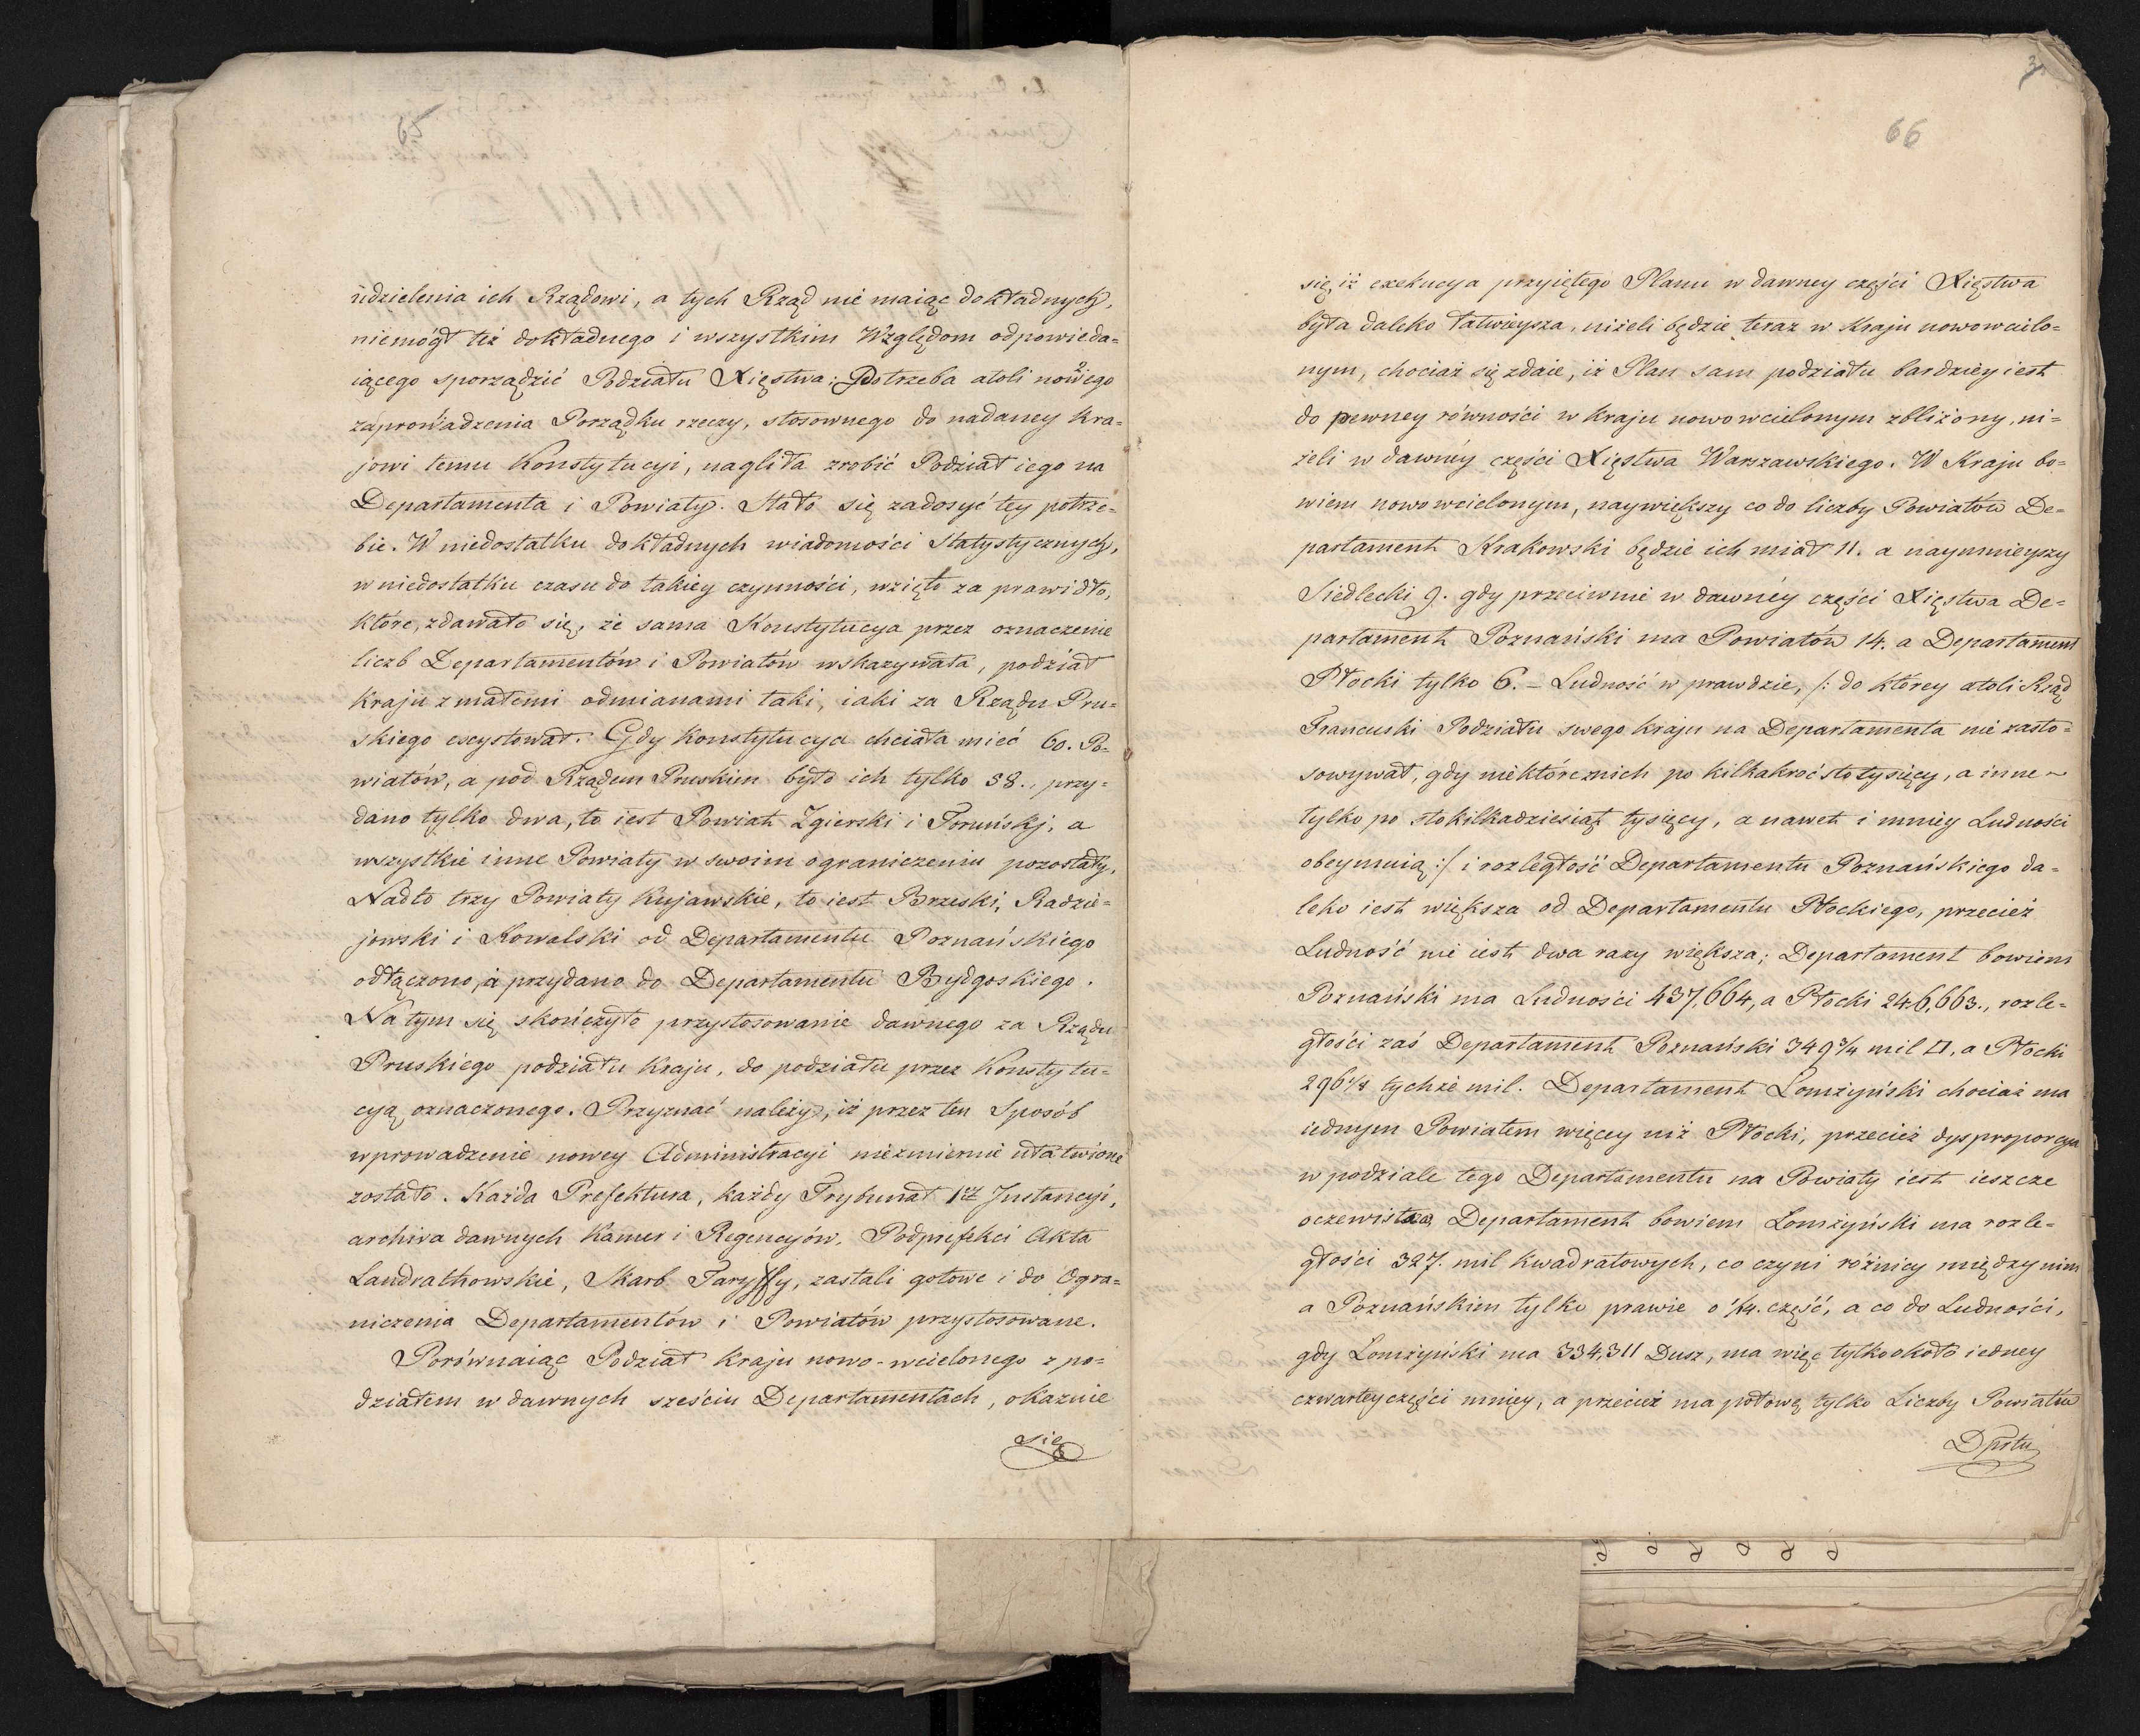 65
udzielenia ich Rządowi, a tych Rząd nie maiąc dokładnych,
niemógł też dokładnego i wszystkim Względom odpowieda=
iącego sporządzić Podziału Xięstwa; Potrzeba atoli nowego
zaprowadzenia Porządku rzeczy, stosownego do nadaney Kra=
jowi temu Konstytucyi, nagliła zrobić Podział iego na
Departamenta i Powiaty. Stało się zadosyć tey potrze=
bie. W niedostatku dokładnych wiadomości Statystycznych,
w niedostatku czasu do takiey czynności, wzięto za prawidło,
które, zdawało się, że sama Konstytucya przez oznaczenie
liczb Departamentów i Powiatów wskazywała, podział
Kraju z małemi odmianami taki, iaki za Rządu Pru=
skiego exystował. Gdy Konstytucya chciała mieć 60. Po=
wiatów, a pod Rządem Pruskim było ich tylko 58., przy=
dano tylko dwa, to iest Powiat Zgierski i Toruński, a
wszystkie inne Powiaty w swoim ograniczeniu pozostały.
Nadto trzy Powiaty Kujawskie, to iest Brzeski, Radzie=
jowski i Kowalski od Departamentu Poznańskiego
odłączono, a przydano do Departamentu Bydgoskiego.
Na tym się skończyło przystosowanie dawnego za Rządu
Pruskiego podziału Kraju, do podziału przez Konstytu=
cyą oznaczonego. Przyznać należy, iż przez ten Sposób
wprowadzenie nowey Administracyi niezmiernie ułatwione
zostało. Każda Prefektura, każdy Trybunał 1ey Instancyi,
archiwa dawnych Kamer i Regencyów, Podprefekci Akta
Landrathowskie, Skarb Taryffy, zastali gotowe i do Ogra=
niczenia Departamentów i Powiatów przystosowane.
Porównaiąc Podział Kraju nowo-wcielonego z po=
działem w dawnych sześciu Departamentach, okazuie
się
66
się, iż exekucya przyiętego Planu w dawney części Xięstwa
była daleko łatwieysza, niżeli będzie teraz w Kraju nowowcilo=
nym, chociaż się zdaie, iż Plan sam podziału bardziey iest
do pewney równości w Kraju nowo wcielonym zbliżony, ni=
żeli w dawnéy części Xięstwa Warszawskiego. W Kraju bo=
wiem nowo wcielonym, naywiększy co do liczby Powiatów De=
partament Krakowski będzie ich miał 11. a naymnieyszy
Siedlecki 9. gdy przeciwnie w dawnéy części Xięstwa De=
partament Poznański ma Powiatów 14. a Departament
Płocki tylko 6. – Ludność w prawdzie, /: do którey atoli Rząd
Francuski Podziału swego kraju na Departamenta nie zasto=
sowywał, gdy niektóre z nich po kilkakroć sto tysięcy, a inne ~
tylko po stokilkadziesiąt tysięcy, a nawet i mniey Ludności
obeymuią :/ i rozległość Departamentu Poznańskiego da=
leko iest większa od Departamentu Płockiego, przecież
Ludność nie iest dwa razy większa; Departament bowiem
Poznański ma Ludności 437,664, a Płocki 246,663., rozle=
głości zaś Departament Poznański 349¾ mil □, a Płocki
296¼ tychże mil. Departament Łomżyński chociaż ma
iednym Powiatem więcey niż Płocki, przecież dysproporcya
w podziale tego Departamentu na Powiaty iest ieszcze
oczewistsza, Departament bowiem Łomżyński ma rozle=
głości 327. mil kwadratowych, co czyni różnicy między nim
a Poznańskim tylko prawie o 1/14. część, a co do Ludności,
gdy Łomżyński ma 334,311 Dusz, ma więc tylko około iedney
czwartey części mniey, a przecież ma połowę tylko Liczby Powiatów
Dprtu